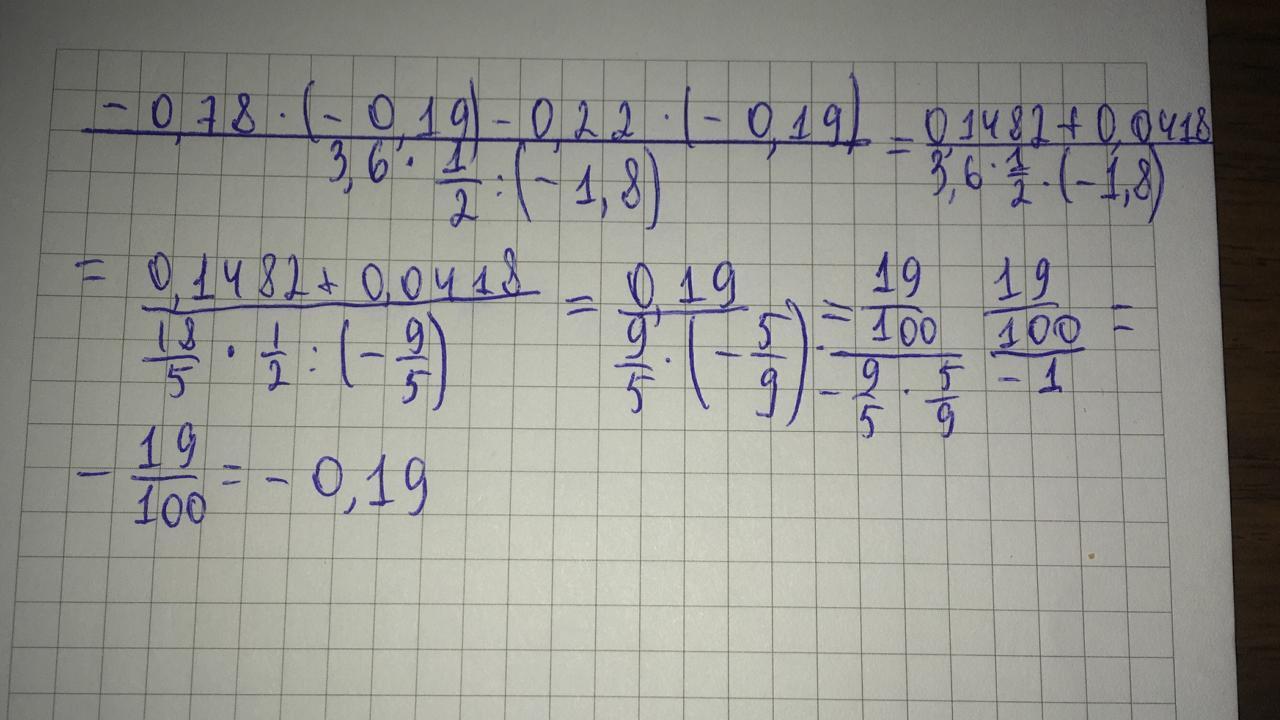 (- 0,78 · (- 0,19) - 0,22 · (- 0,19)) / (3,6 · 1/2 : (- 1,8)) = (0,1482 + 0,0418) / (3,6 · 1/2 · (-1,8))
= (0,1482 + 0,0418) / (18/5 · 1/2 : (- 9/5)) = 0,19 / (9/5 · (- 5/9)) = (19/100) / (- 9/5 · 5/9) (19/100) / (- 1) =
- 19/100 = - 0,19